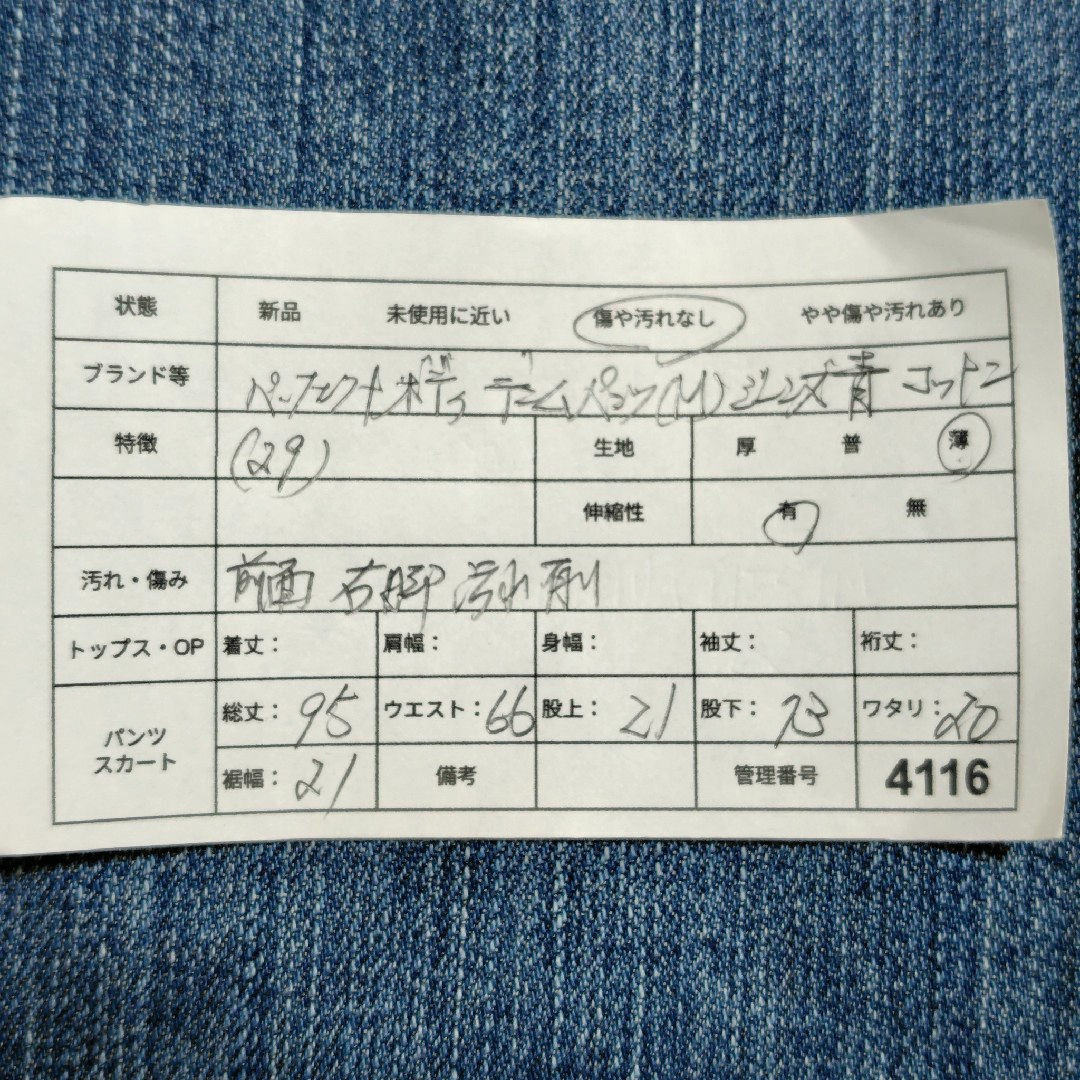 状態 新品 未使用に近い 傷や汚れなし やや傷や汚れあり
ブランド等 パーフェクトボディ デニムパンツ(M) ジーンズ 青 コットン
特徴 (29) 生地 厚 普 薄
伸縮性 有 無
汚れ・傷み 前面 右脚 汚れ有り
トップス・OP 着丈： 肩幅： 身幅： 袖丈： 裄丈：
パンツ スカート 総丈：95 ウエスト：66 股上：21 股下：73 ワタリ：20
裾幅：21 備考 管理番号 4116